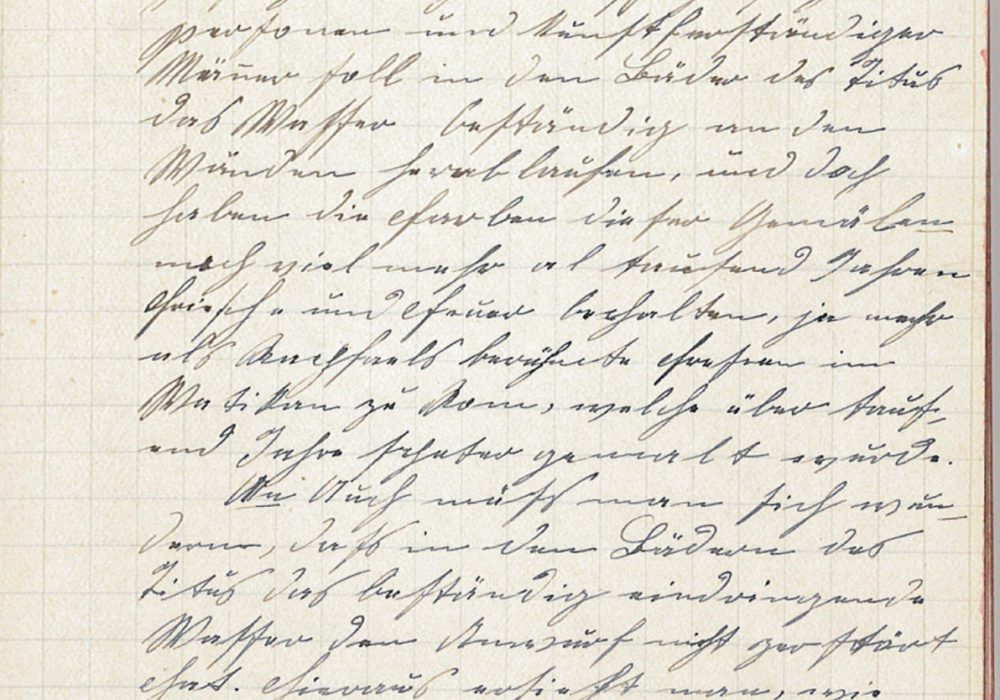 personen und Kunstferständiger
Männer soll in den Bäder des Titus
das Wasser beständig an den
Wänden herablaufen, und doch
haben die Farben dieser Gemälen
noch viel mehr al tausend Jahren
Friesche und Feuer behalten, ja mehr
als Raphaels berühmte Fresken im
Watikan zu Rom, welche über taus-
end Jahre speter gemalt wurde.
An Auch muss man sich wun-
dern, dass in den Bädern des
Titus das beständig eindringende
Wasser den Anwurf nicht zerstört
hat. Hieraus ersieht man, wie